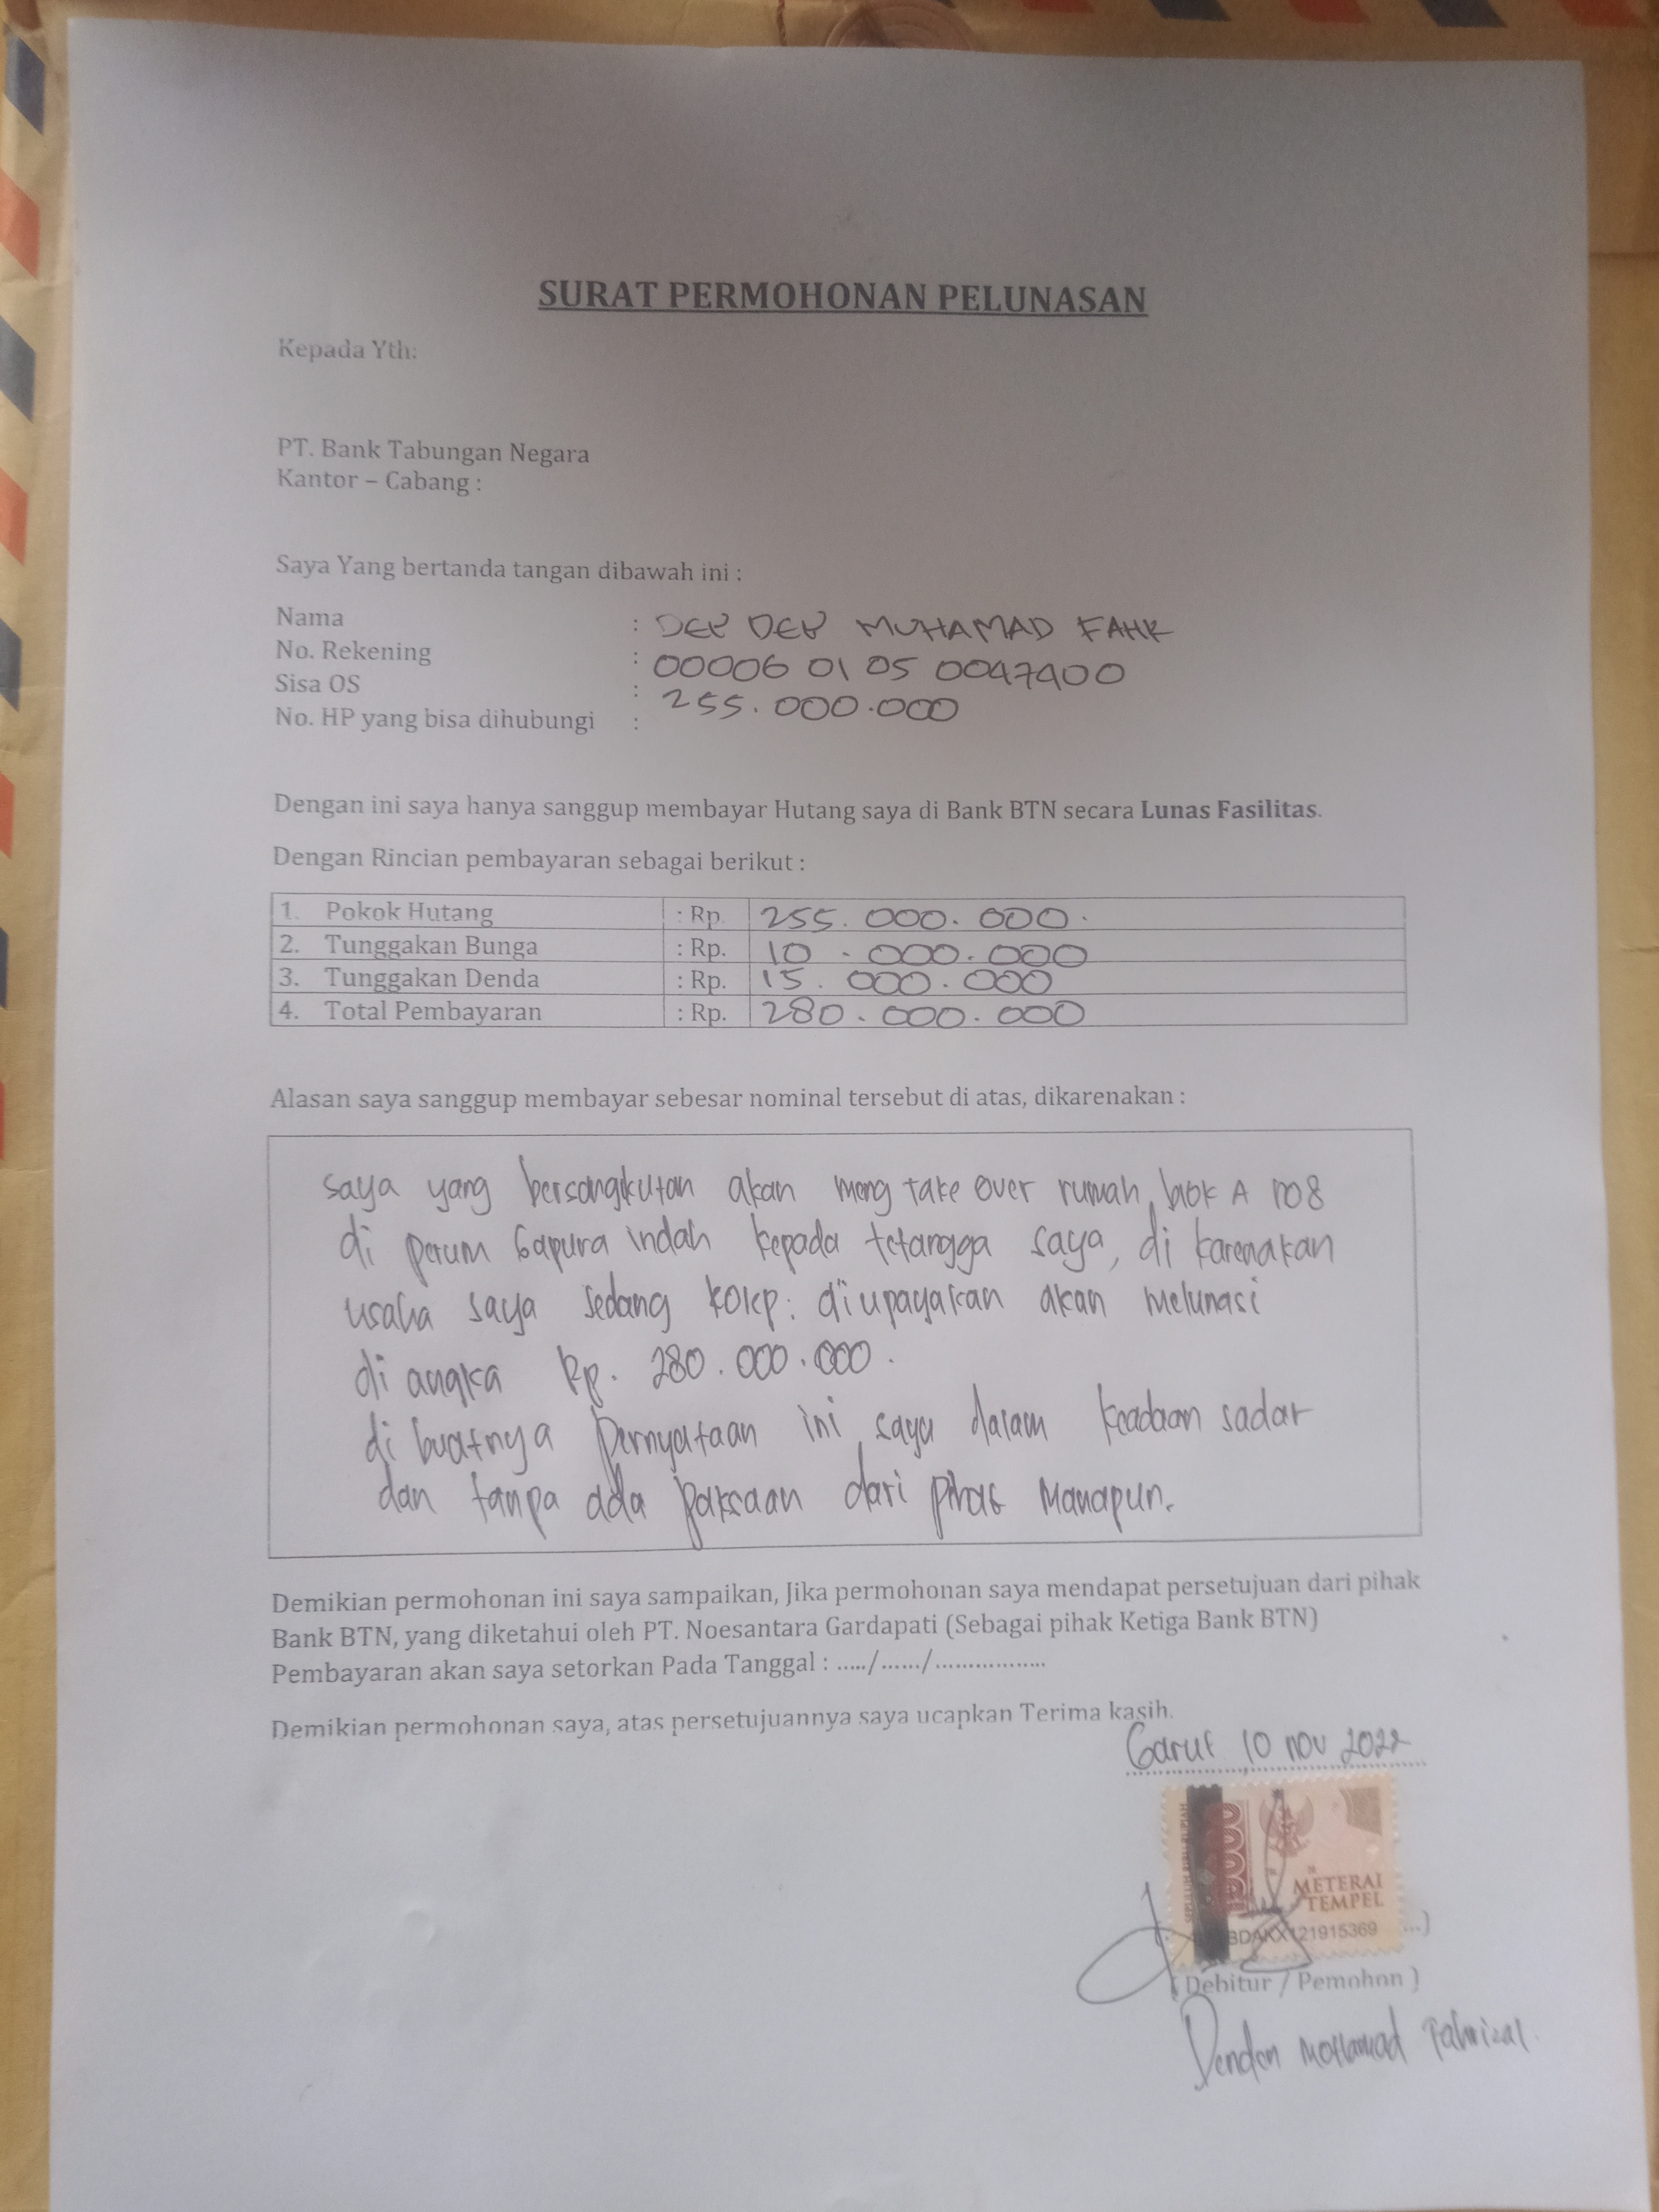 SURAT PERMOHONAN PELUNASAN
Kepada Yth:
PT. Bank Tabungan Negara
Kantor – Cabang :
Saya Yang bertanda tangan dibawah ini :
Nama : MUHAMAD FAHR
No. Rekening : 00006 01 05 0047900
Sisa OS : 255.000.000
No. HP yang bisa dihubungi :
Dengan ini saya hanya sanggup membayar Hutang saya di Bank BTN secara Lunas Fasilitas.
Dengan Rincian pembayaran sebagai berikut :
1. Pokok Hutang : Rp. 255.000.000.
2. Tunggakan Bunga : Rp. 10.000.000
3. Tunggakan Denda : Rp. 15.000.000
4. Total Pembayaran : Rp. 280.000.000
Alasan saya sanggup membayar sebesar nominal tersebut di atas, dikarenakan :
saya yang bersangkutan akan meng take over rumah, blok A no8
di perum Gapura indah kepada tetangga saya, di karenakan
usaha saya sedang : diupayakan akan melunasi
di angka Rp. 280.000.000.
di buatnya pernyataan ini, saya dalam keadaan sadar
dan tanpa ada paksaan dari pihak manapun.
Demikian permohonan ini saya sampaikan, Jika permohonan saya mendapat persetujuan dari pihak
Bank BTN, yang diketahui oleh PT. Noesantara Gardapati (Sebagai pihak Ketiga Bank BTN)
Pembayaran akan saya setorkan Pada Tanggal : ...../....../..................
Demikian permohonan saya, atas persetujuannya saya ucapkan Terima kasih.
Garut, 10 nov 2022
SEPULUH RIBU RUPIAH
10000
METERAI
TEMPEL
BDAKX121915369
...)
( Debitur / Pemohon )
Denden Mohamad Fahrizal.